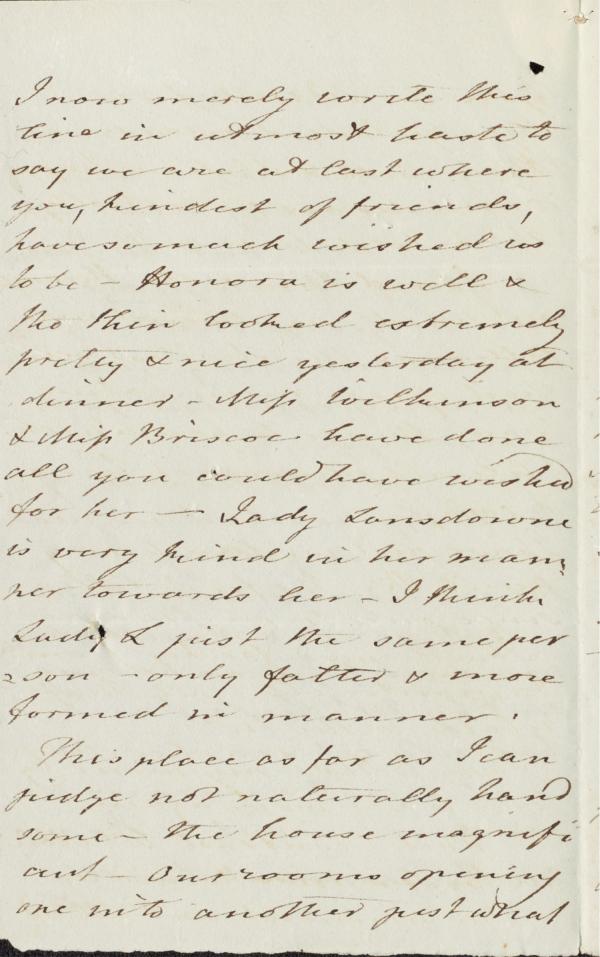 I now merely write this
line in utmost haste to
say we are at last where
you, kindest of friends,
have so much wished us
to be - Honora is well &
tho thin looked extremely
pretty & nice yesterday at
dinner - Miss Wilkinson
& Miss Briscoe have done
all you could have wished
for her - Lady Lansdowne
is very kind in her man-
ner towards her - I think
Lady L just the same per
=son - only fatter & more
formed in manner.
This place as far as I can
judge not naturally hand
some - the house magnifi
cent - Our rooms opening
one into another just what